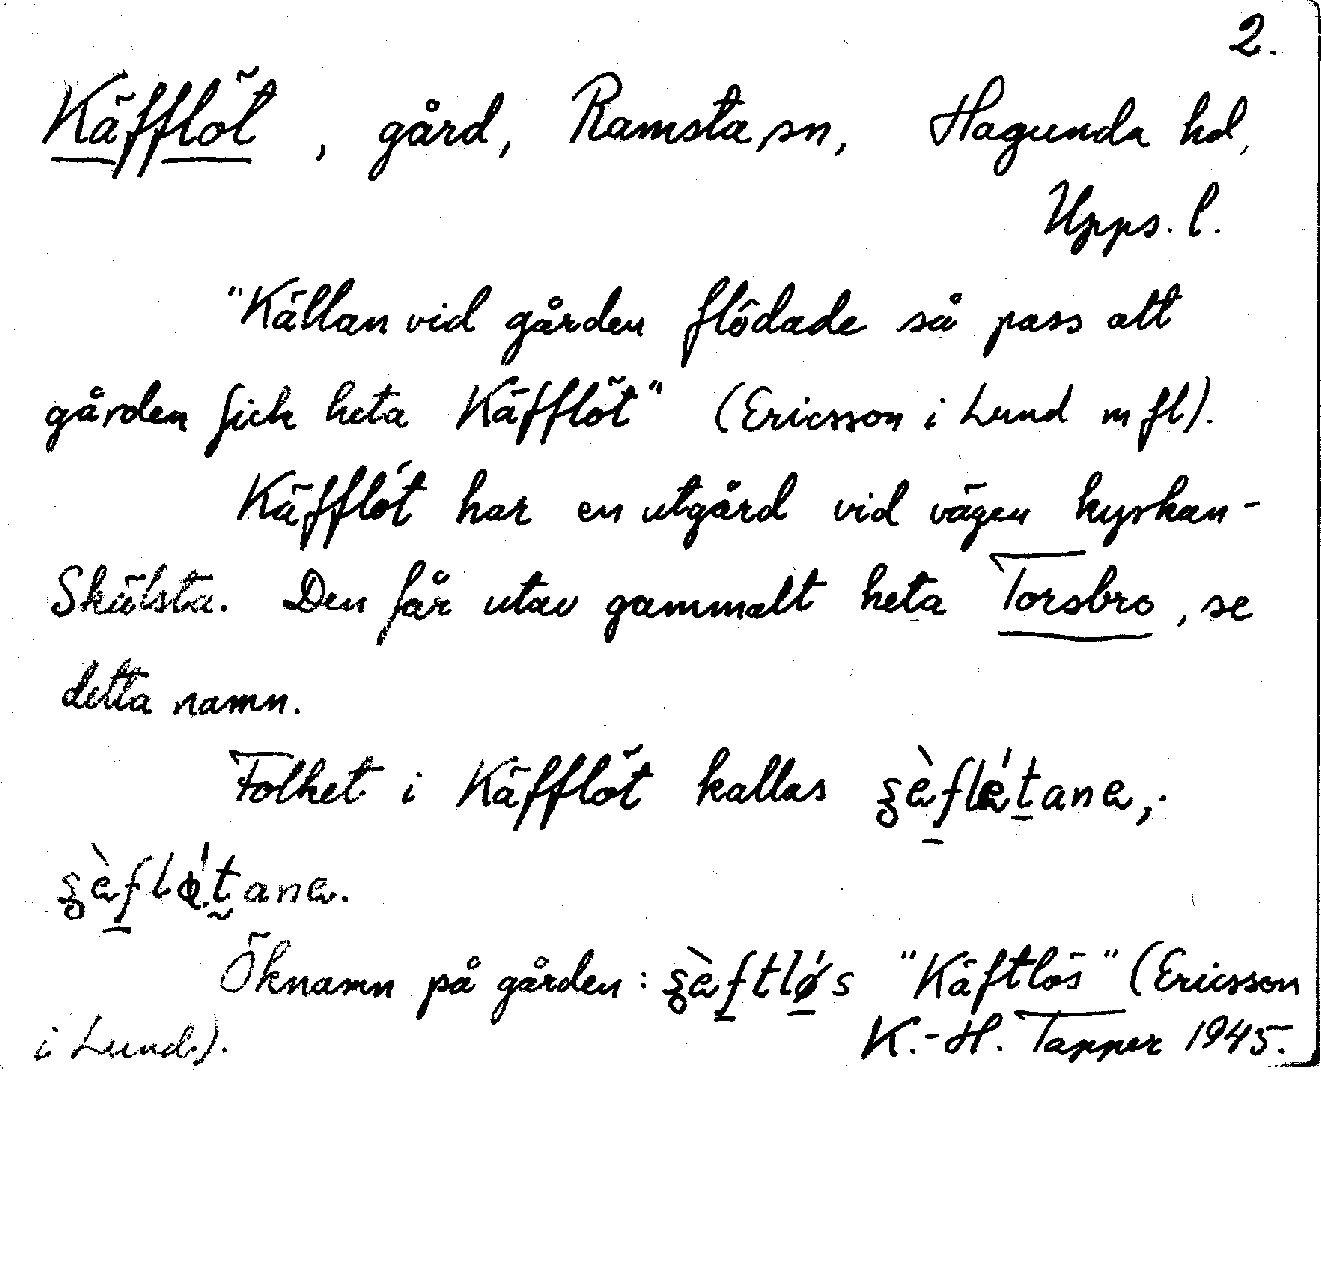 2.
Käfflöt, gård, Ramsta sn, Hagunda hd,
Upps. l.
"Källan vid gården flödade så pass att
gården fick heta Käfflöt" (Ericsson i Lund m fl).
Käfflöt har en utgård vid vägen kyrkan-
Skälsta. Den får utav gammalt heta Torsbro, se
detta namn.
Folket i Käfflöt kallas
Öknamn på gården: "Käftlös" (Ericsson
i Lund.). K.-H. Tapper 1945.